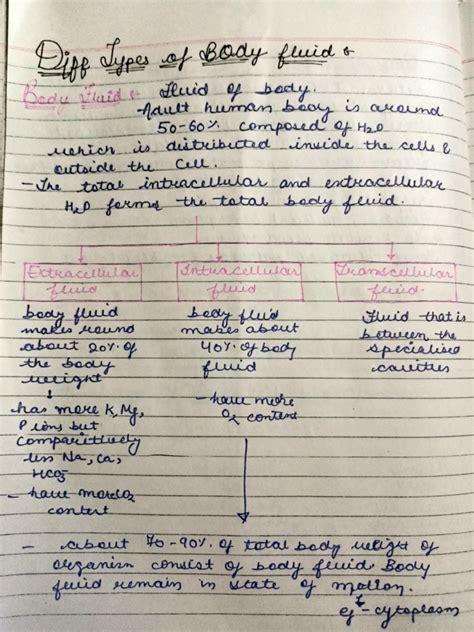 Diff Types of Body fluid :
Body Fluid : Fluid of body.
- Adult human body is around
50-60% composed of H2O
which is distributed inside the cells &
outside the cell.
- The total intracellular and extracellular
H2O forms the total body fluid.
Extracellular
fluid
body fluid
makes round
about 20% of
the body
weight
has more K, Mg,
P ions but
comparitively
less Na, Ca,
HCO3
- have more O2
content
Intracellular
fluid
body fluid
makes about
40% of body
fluid
- have more
O2 content
Transcellular
fluid.
Fluid that is
between the
specialised
cavities
- about 70-90% of total body weight of
organism consist of body fluid. Body
fluid remain in state of motion.
eg - cytoplasm